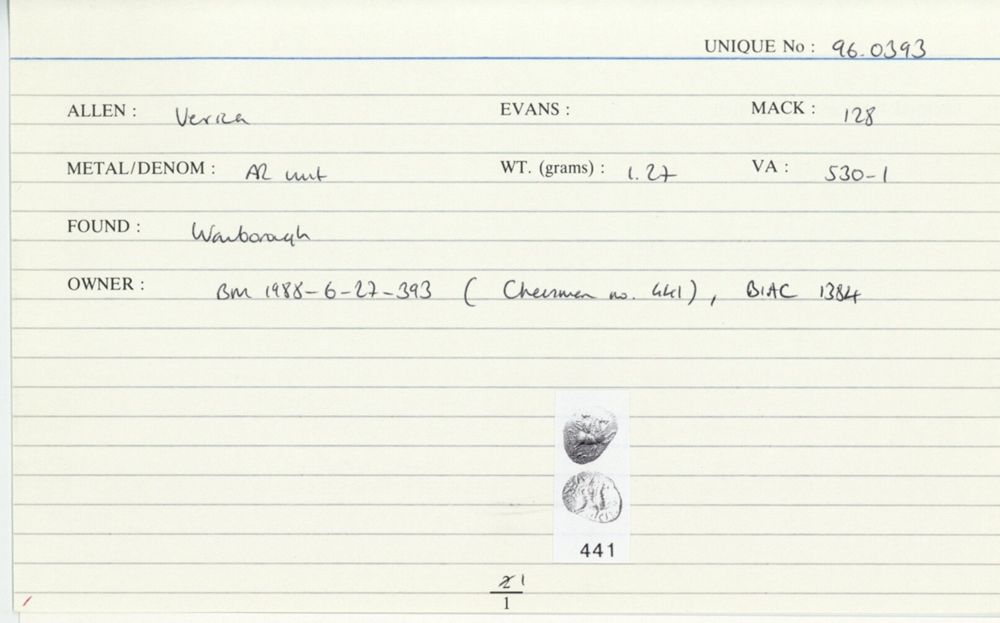 UNIQUE No : 96.0393
ALLEN : Verica EVANS : MACK : 128
METAL/DENOM : AR unit WT. (grams) : 1.27 VA : 530-1
FOUND : Wanborough
OWNER : BM 1988-6-27-393 ( Cheesman no. 441), BIAC 1384
441
1
1